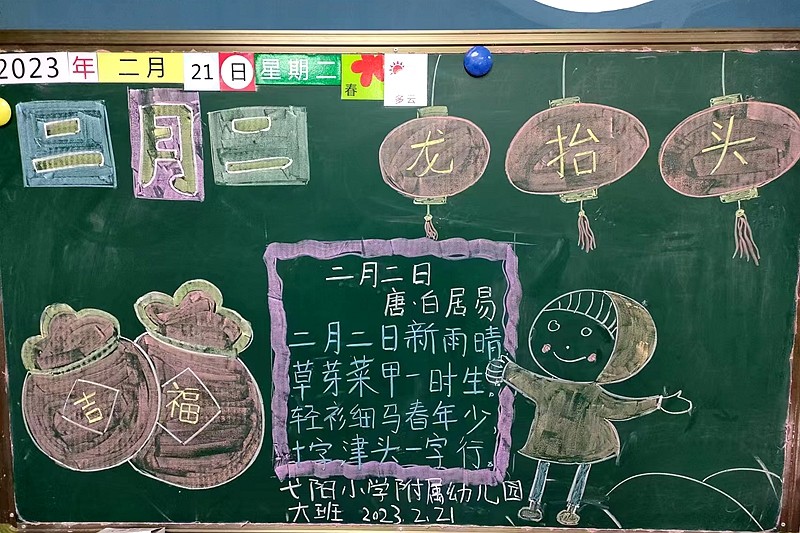 2023 年 二月 21 日 星期二 春 多云
二月二
龙抬头
二月二日
唐·白居易
二月二日新雨晴,
草芽菜甲一时生。
轻衫细马春年少,
十字津头一字行。
吉 福
弋阳小学附属幼儿园
大班 2023.2.21